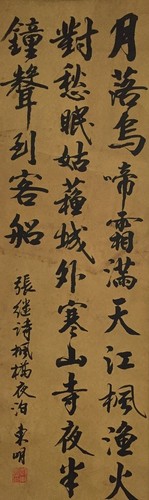 月落烏啼霜滿天江楓漁火
對愁眠姑蘇城外寒山寺夜半
鐘聲到客船
張继诗楓橋夜泊 東明